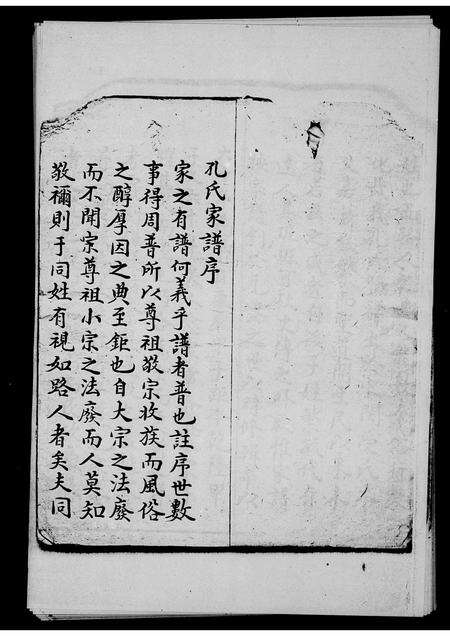 孔氏家譜序
家之有譜何義乎譜者普也註序世數
事得周普所以尊祖敬宗收族而風俗
之醇厚因之典至鉅也自大宗之法廢
而不開宗尊祖小宗之法廢而人莫知
敬禰則于同姓有視如路人者矣夫同